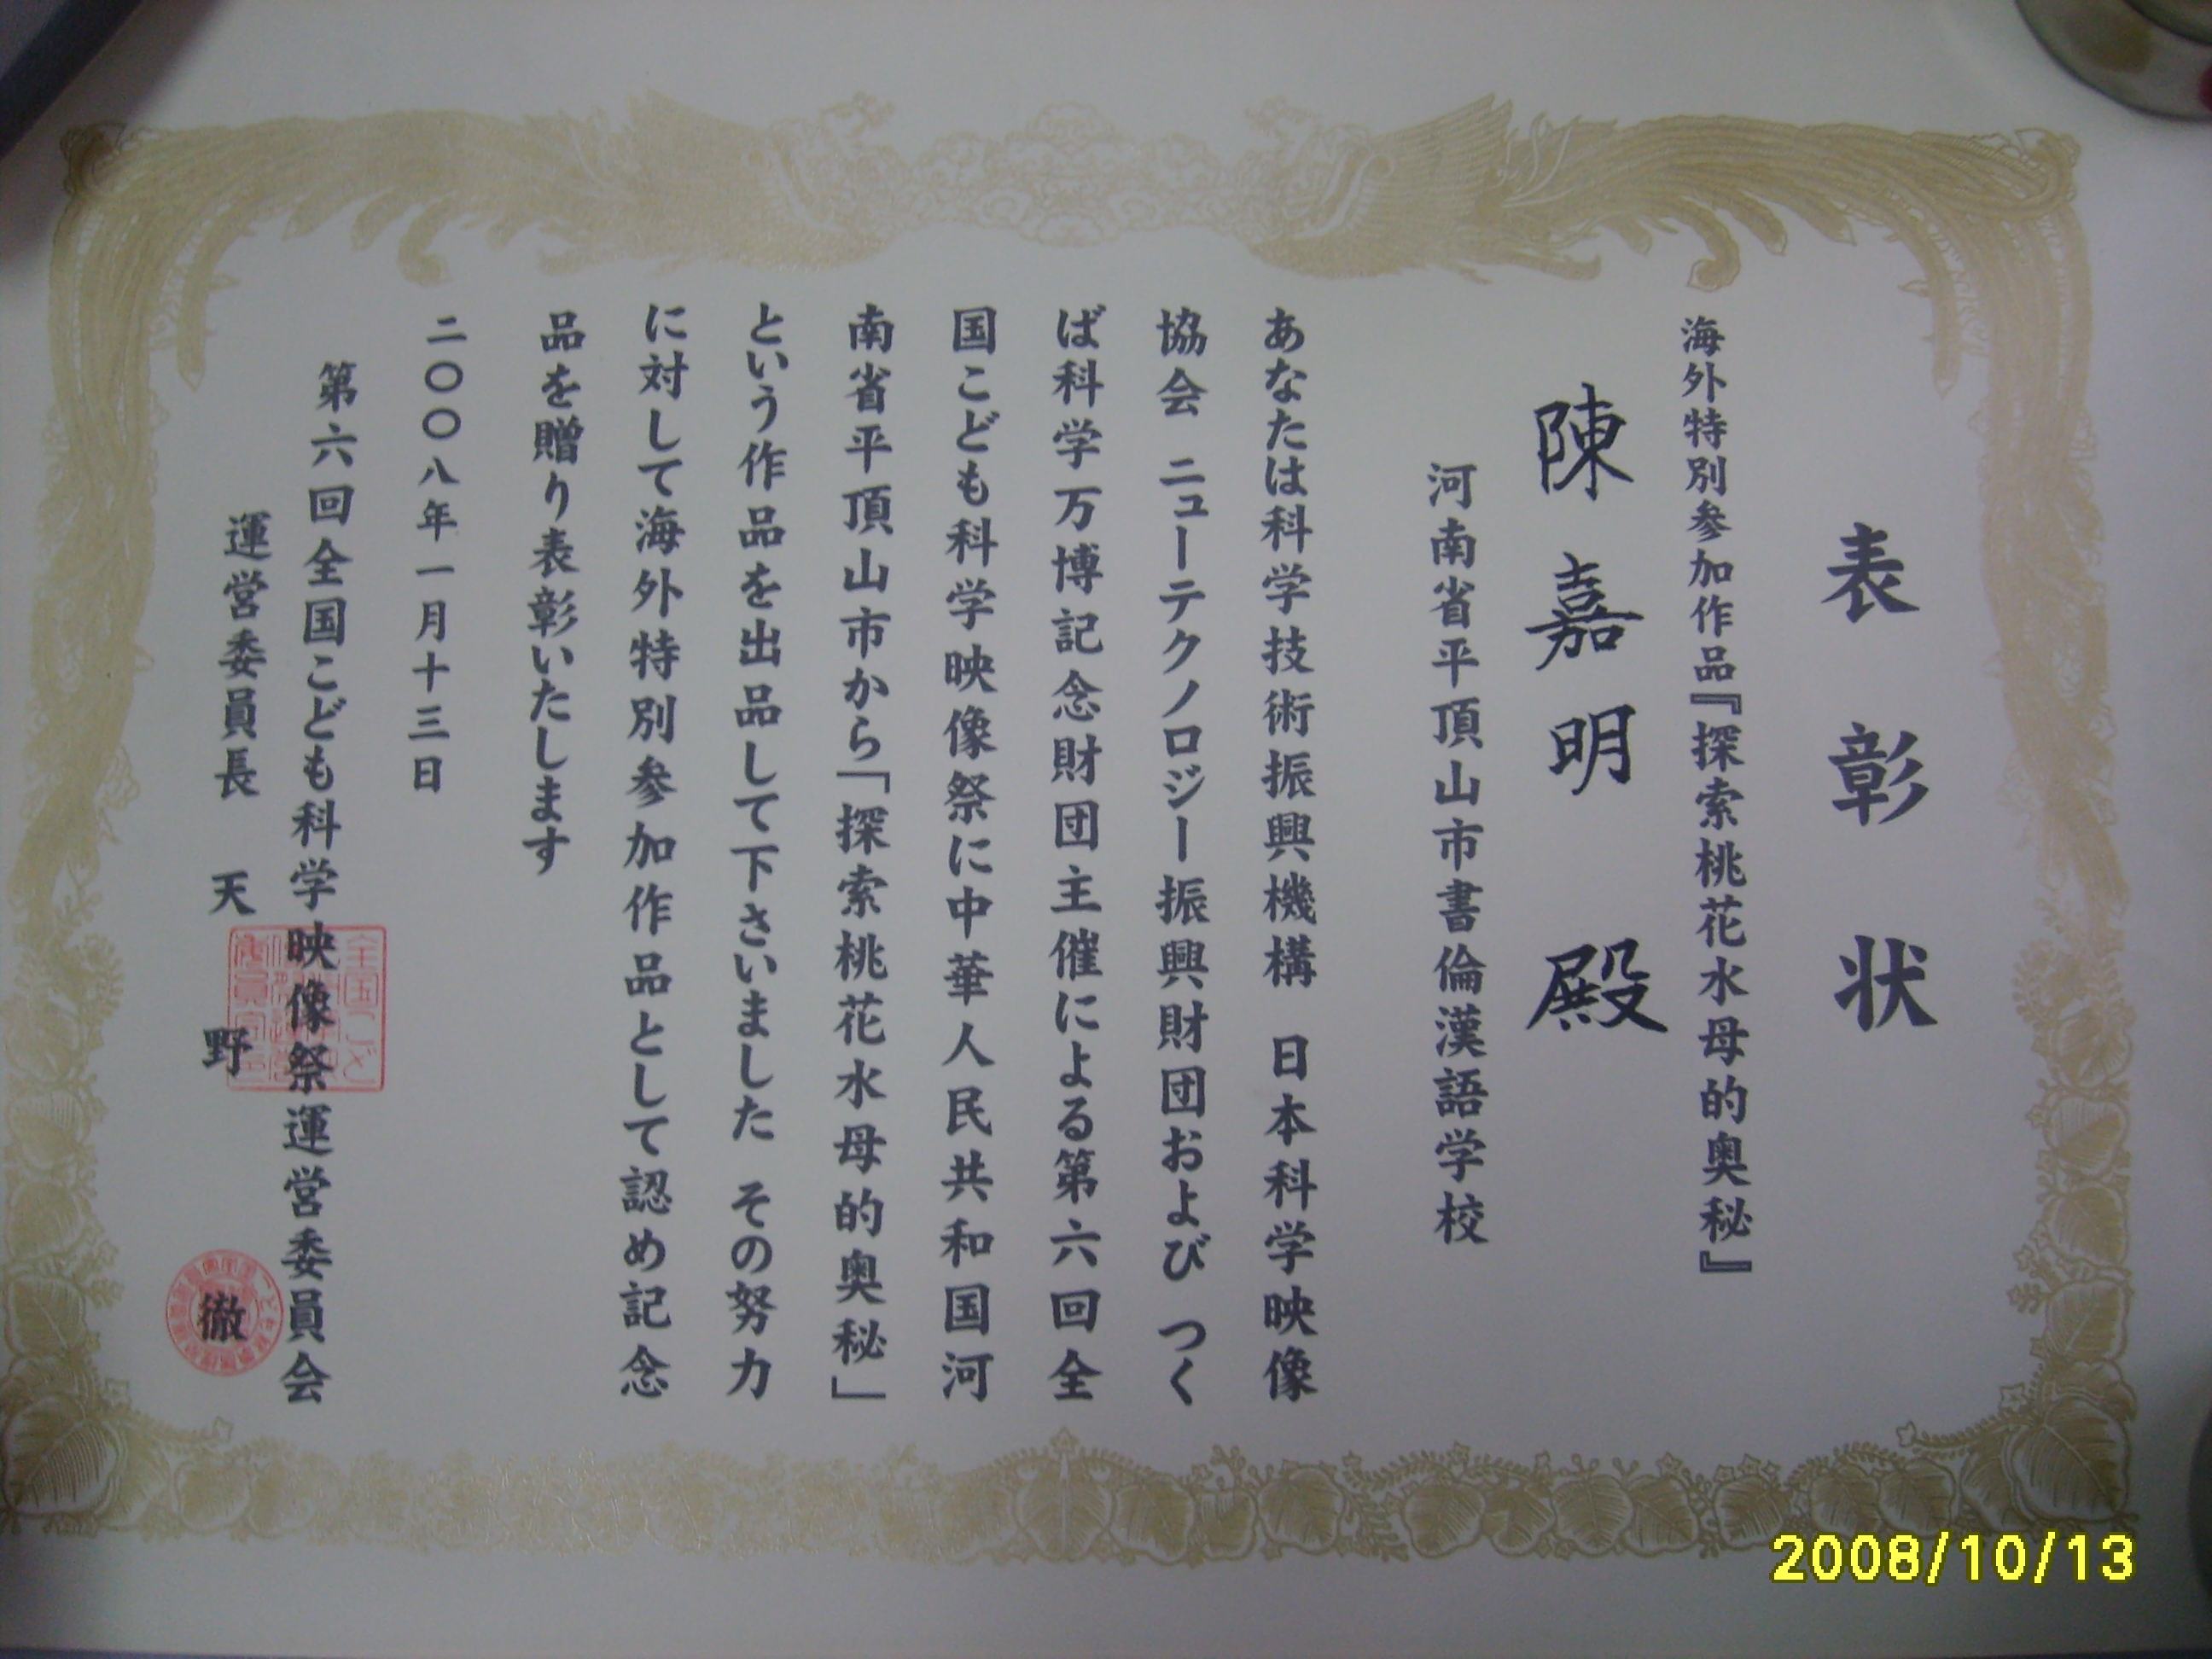 表彰状
海外特別参加作品『探索桃花水母的奥秘』
陳嘉明 殿
河南省平頂山市書倫漢語学校
あなたは科学技術振興機構 日本科学映像
協会 ニューテクノロジー振興財団および つく
ば科学万博記念財団主催による第六回全
国こども科学映像祭に中華人民共和国河
南省平頂山市から「探索桃花水母的奥秘」
という作品を出品して下さいました その努力
に対して海外特別参加作品として認め記念
品を贈り表彰いたします
二〇〇八年一月十三日
第六回全国こども科学映像祭運営委員会
運営委員長 天野 徹
全国こど
2008/10/13